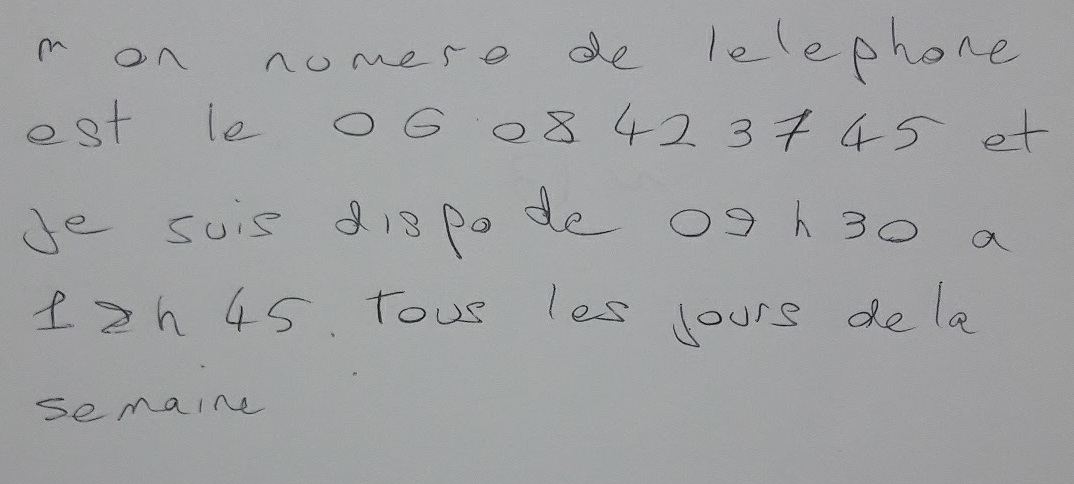 mon numero de telephone
est le 06 08 42 37 45 et
je suis dispo de 09 h 30 a
12h 45. Tous les jours de la
semaine